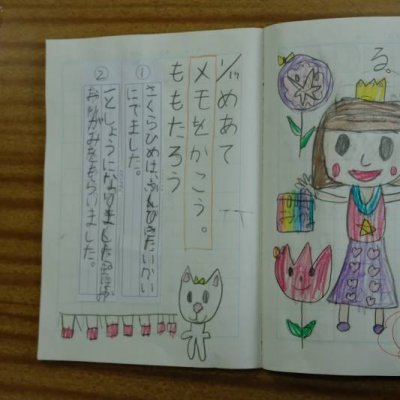 る。
めあて
メモをかこう。
ももたろう
①
さくらひめは、たいかい
にでました。
②
一としょうになりました
おりがみをもらいました。